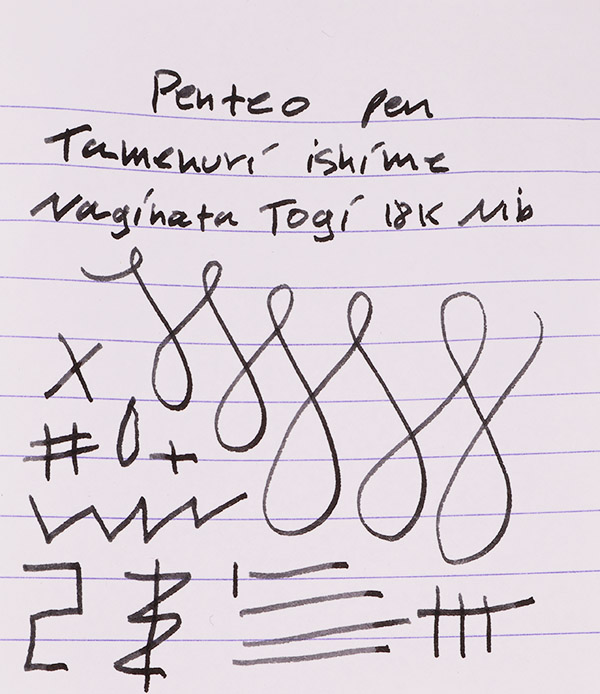 Penteo pen
Tamenuri ishime
Naginata Togi 18K Nib
X
# 0 +